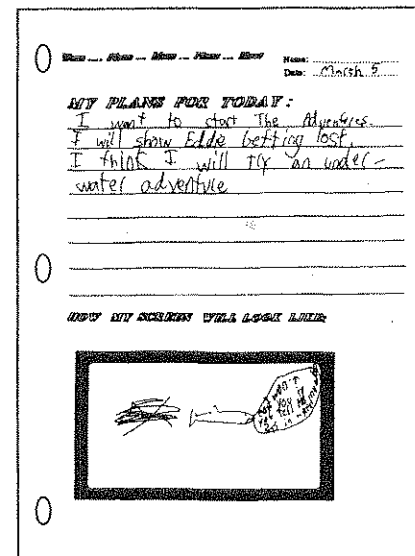 Name:
Date: March 5
MY PLANS FOR TODAY:
I want to start The Adventures.
I will show Eddie getting lost.
I think I will try an under-
water adventure
HOW MY SCREEN WILL LOOK LIKE: